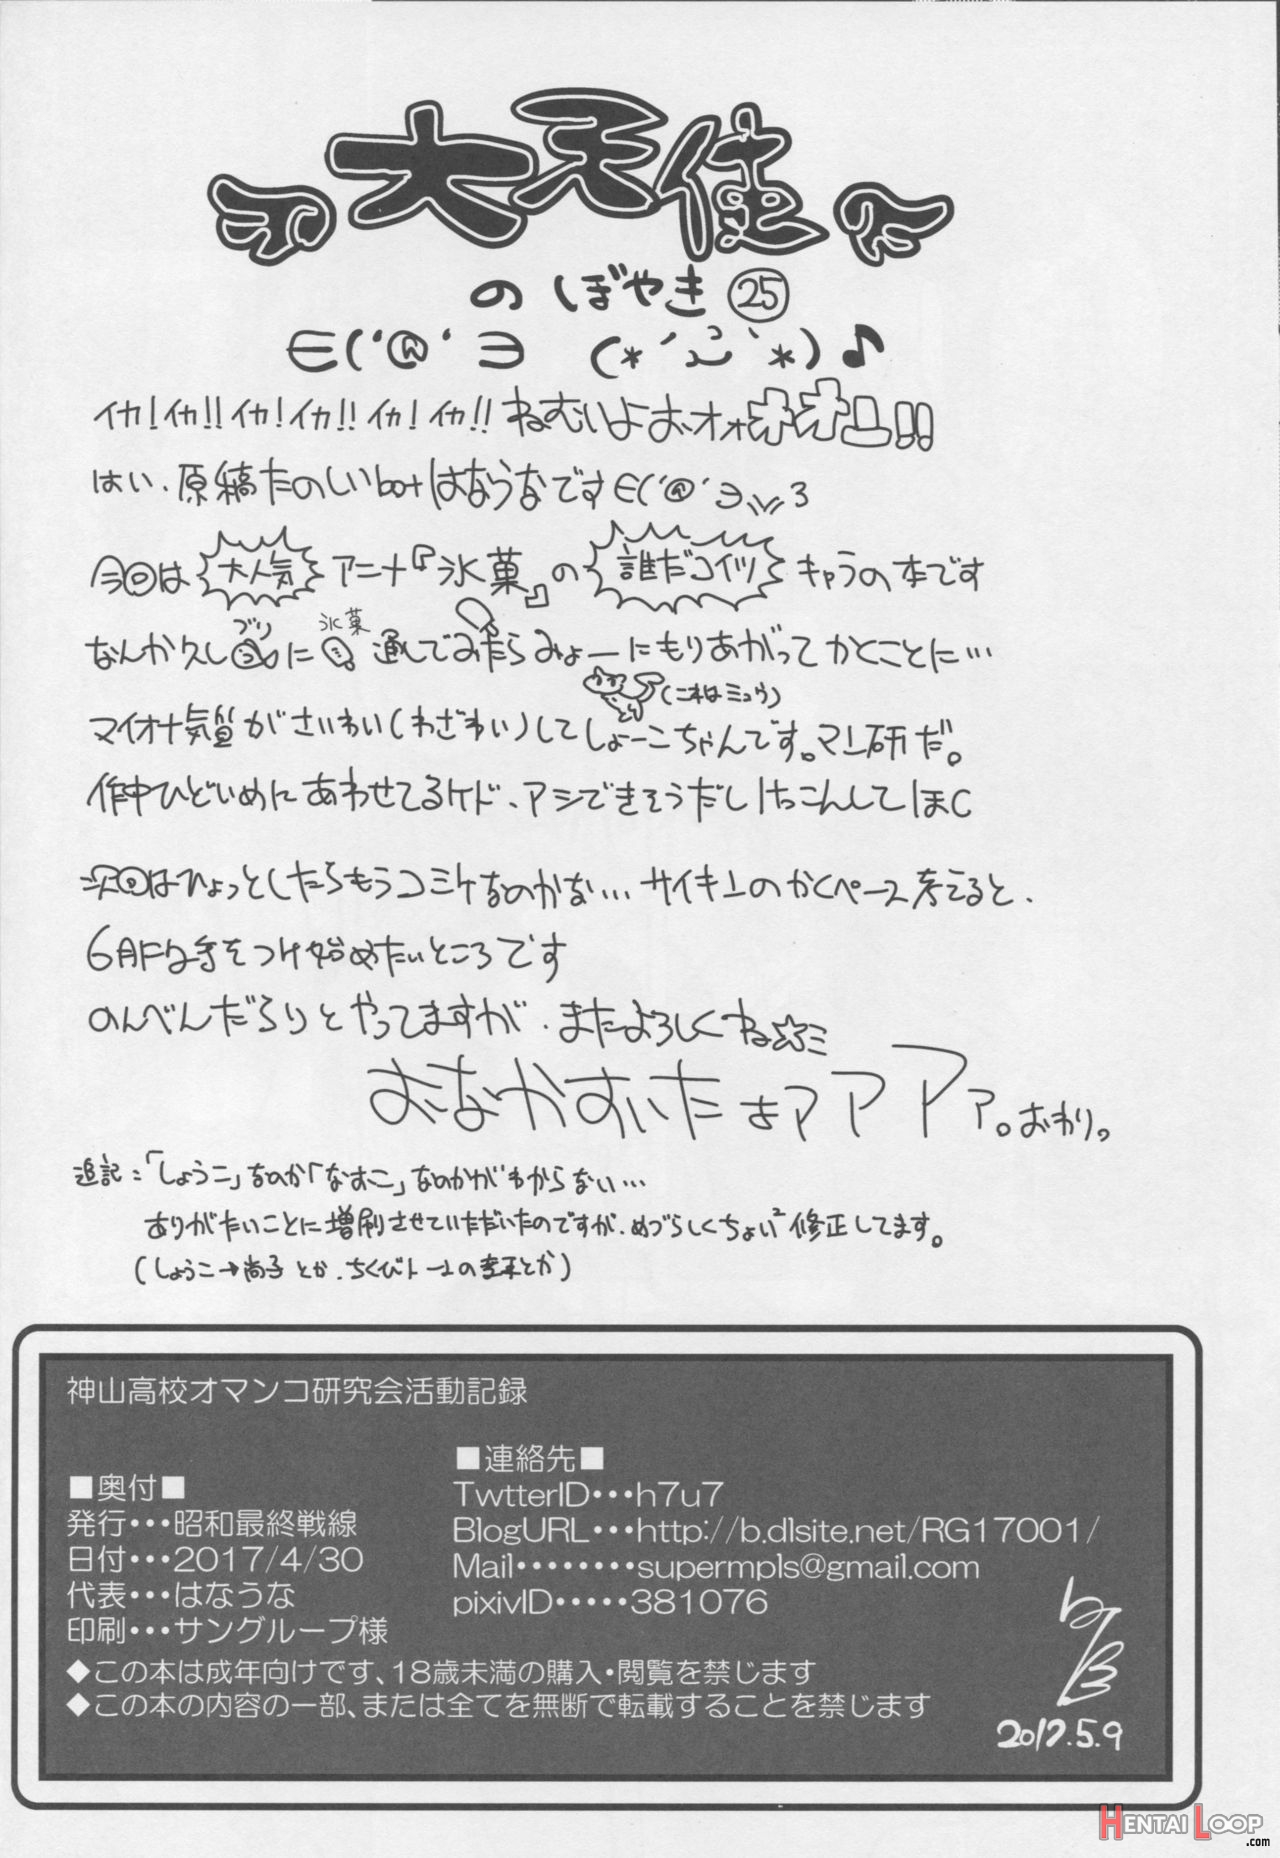 大天使
のぼやき㉕
∈('@'∋ (*´ω`*)♪
イカ!イカ!!イカ!イカ!!イカ!イカ!! ねむいよおォォオオー!!
はい、原稿たのしいbotはなうなです∈('@'∋ 彡3
今回は大人気アニメ『氷菓』の誰だコイツキャラの本です
ブリ 氷菓
なんか久しに通してみたらみょーにもりあがってかくことに…
(これはミュウ)
マイオナ気質がさいわい(わざわい)してしょーこちゃんです。マン研だ。
作中ひどいめにあわせてるケド、アシできそうだしけっこんしてほC
次回はひょっとしたらもうコミケなのかな… サイキンのかくペース考えると、
6月には手をつけ始めたいところです
のんべんだらりとやってますが、またよろしくね☆ミ
おなかすいたよァアアァ。おわり。
追記:「しょうこ」なのか「なおこ」なのかがわからない…
ありがたいことに増刷させていただいたのですが、めづらしくちょい²修正してます。
(しょうこ→尚子とか、ちくびトーンの とか)
神山高校オマンコ研究会活動記録
■奥付■
発行•••昭和最終戦線
日付•••2017/4/30
代表•••はなうな
印刷•••サングループ様
■連絡先■
TwtterID•••h7u7
BlogURL•••http://b.dlsite.net/RG17001/
Mail••••••••supermpls@gmail.com
pixivID•••••381076
◆この本は成年向けです、18歳未満の購入・閲覧を禁じます
◆この本の内容の一部、または全てを無断で転載することを禁じます
2017.5.9
HENTAI LOOP
.com